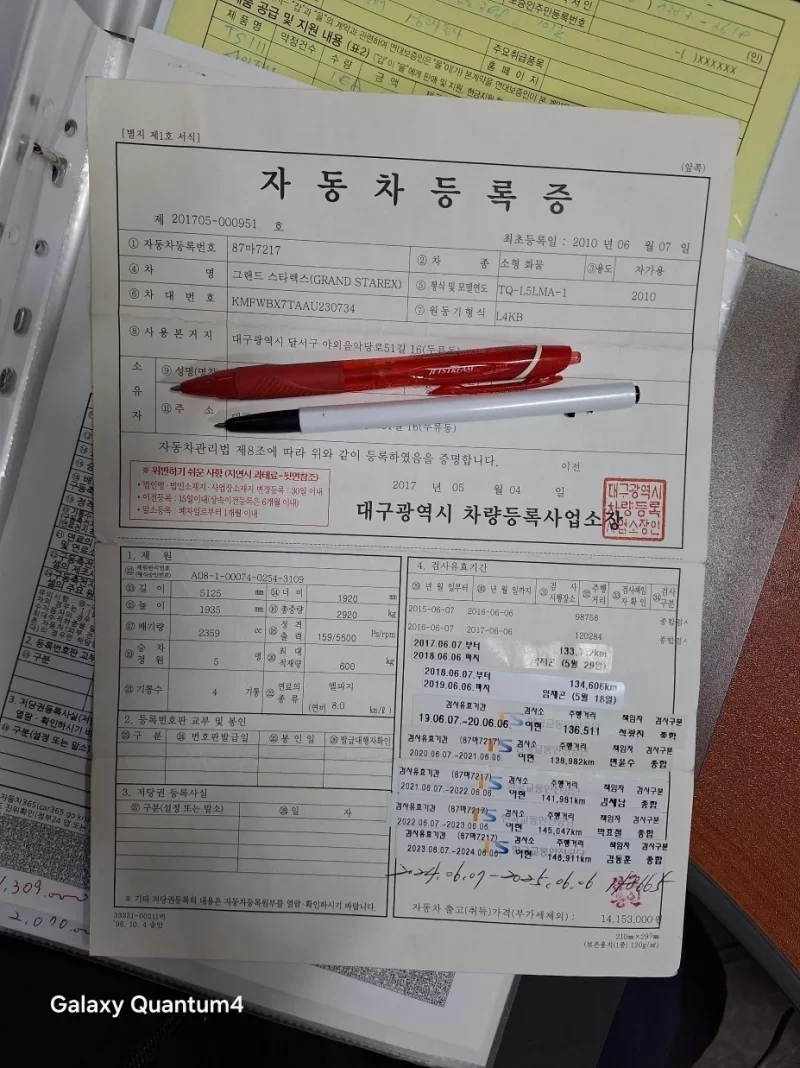 제품 공급 및 지원 내용 (표2)
제 품 명
약정건수
수 량
금 액
주요취급품목
홈 페 이 지
(인)
[별지 제1호 서식]
(앞쪽)
자 동 차 등 록 증
제 201705-000951 호
최초등록일 : 2010 년 06 월 07 일
① 자동차등록번호 87마7217 ② 차 종 소형 화물 ③용도 자가용
④ 차 명 그랜드 스타렉스(GRAND STAREX) ⑤ 형식 및 모델연도 TQ-L5LMA-1 2010
⑥ 차 대 번 호 KMFWBX7TAAU230734 ⑦ 원동기형식 L4KB
⑧ 사 용 본 거 지 대구광역시 달서구 야외음악당로51길 16(두류동)
소 유 자
⑨ 성명(명칭)
JETSTREAM
⑪ 주 소
16(두류동)
자동차관리법 제8조에 따라 위와 같이 등록하였음을 증명합니다.
이전
※ 위반하기 쉬운 사항 (지연시 과태료 - 뒷면참조)
• 법인명·법인소재지·사업장소재지 변경등록 : 30일 이내
• 이전등록 : 15일이내(상속이전등록은 6개월 이내)
• 말소등록 : 폐차일로부터 1개월 이내
2017 년 05 월 04 일
대구광역시 차량등록사업소장
대구광역시
차량등록
사업소장인
1. 제 원
제원관리번호 (형식승인번호) A08-1-00074-0254-3109
⑬ 길 이 5125 mm ⑭ 너 비 1920 mm
⑮ 높 이 1935 mm ⑯ 총중량 2920 kg
⑰ 배기량 2359 cc ⑱ 정 격 출 력 159/5500 Ps/rpm
⑲ 승 차 정 원 5 명 ⑳ 최 대 적재량 600 kg
㉑ 기통수 4 기통 ㉒ 연료의 종 류 엘피지
(연비 8.0 km/ℓ)
2. 등록번호판 교부 및 봉인
㉓ 구 분 ㉔ 번호판발급일 ㉕ 봉 인 일 ㉖ 발급대행자확인
3. 저당권 등록사실
㉗ 구분(설정 또는 말소) ㉘ 일 자
※ 기타 저당권등록의 내용은 자동차등록원부를 열람·확인하시기 바랍니다.
33331-00211비
'96. 10. 4 승인
4. 검사유효기간
㉙ 년 월 일부터 ㉚ 년 월 일까지 ㉛ 검 사 시행장소 ㉜ 주행 거리 ㉝ 검사책임 자 확 인 ㉞ 검사 구분
2015-06-07 2016-06-06 98758
2016-06-07 2017-06-06 120284
2017.06.07.부터
2018.06.06 까지
(5월 29일)
2018.06.07.부터 134,606km
2019.06.06.까지 임채곤 (5월 18일)
검사유효기간 검사소 주행거리 책임자 검사구분
19.06.07.~20.06.06. 이현 136,511 종합
검사유효기간 (87마7217) 검사소 주행거리 책임자 검사구분
2020.06.07.-2021.06.06 이현 138,982km 변윤수 종합
검사유효기간 (87마7217) 검사소 주행거리 책임자 검사구분
2021.06.07.-2022.06.06 이현 141,981km 김세남 종합
검사유효기간 (87마7217) 검사소 주행거리 책임자 검사구분
2022.06.07.-2023.06.06 이현 145,047km 박효철 종합
검사유효기간 (87마7217) 검사소 주행거리 책임자 검사구분
2023.06.07.-2024.06.06 이현 146,911km 김동훈 종합
2024.06.07 - 2025.06.06
자동차 출고(취득)가격(부가세제외) : 14,153,000원
210㎜×297㎜
(보존용지(1종) 120g/㎡)
Galaxy Quantum4